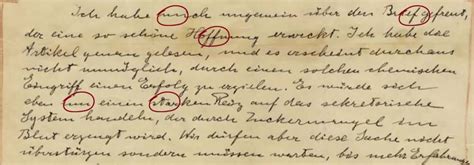 Ich habe mich ungemein über den Brief gefreut,
der eine so schöne Hoffnung erweckt. Ich habe das
Artikel genau gelesen, und es erscheint durchaus
nicht unmöglich, durch einen solchen chemischen
Eingriff einen Erfolg zu erzielen. Es würde sich
eben um einen starken Reiz auf das sekretorische
System handeln, der durch Zuckermangel im
Blut erzeugt wird. Wir dürfen aber diese Sache nicht
überstürzen sondern müssen warten, bis mehr Erfahrung